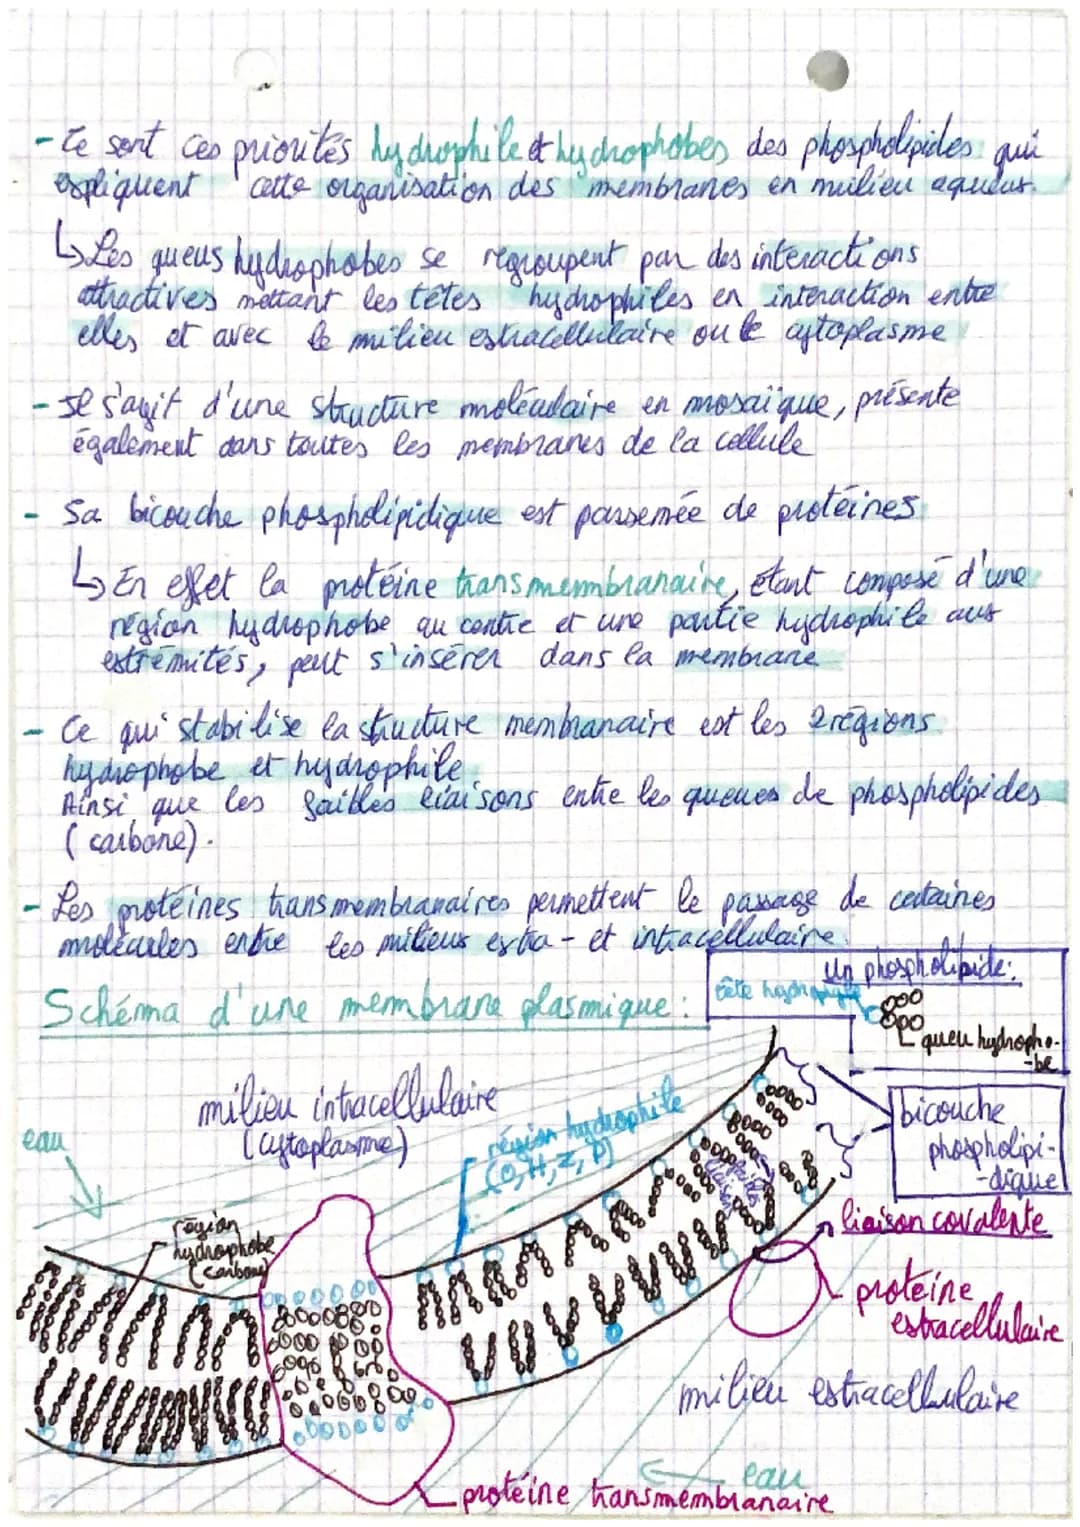 - Ce sont ces priorités hydrophile et hydrophobes des phospholipides qui
expliquent cette organisation des membranes en milieu aqueux.
↳ Les queus hydrophobes se regroupent par des interactions
attractives mettant les têtes hydrophiles en interaction entre
elles et avec le milieu extracellulaire ou le cytoplasme
- Il s'agit d'une structure moléculaire en mosaïque, présente
également dans toutes les membranes de la cellule
- Sa bicouche phospholipidique est parsemée de protéines
↳ En effet la protéine transmembranaire, étant composé d'une
région hydrophobe au centre et une partie hydrophile aux
extrémités, peut s'insérer dans la membrane
- Ce qui stabilise la structure membranaire est les 2 régions
hydrophobe et hydrophile
Ainsi que les faibles liaisons entre les queues de phospholipides
(carbone).
- Les protéines transmembranaires permettent le passage de certaines
molécules entre les milieux extra- et intracellulaire.
Schéma d'une membrane plasmique :
Un phospholipide :
tête hydrophile
queu hydropho-
-be
milieu intracellulaire
(cytoplasme)
eau
région hydrophile
(O, H, Z, P)
bicouche
phospholipi-
-dique
faibles
liaisons
région
hydrophobe
(carbone)
liaison covalente
protéine
extracellulaire
milieu extracellulaire
eau
protéine transmembranaire